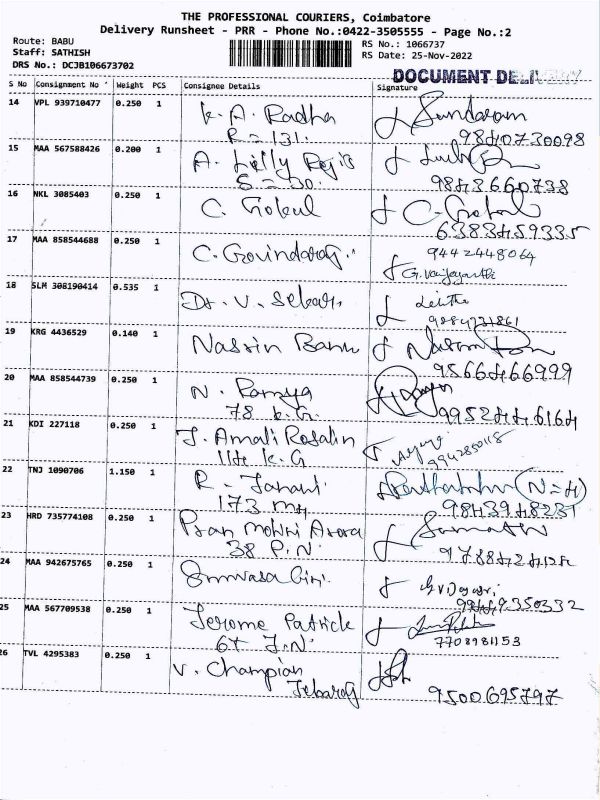 THE PROFESSIONAL COURIERS, Coimbatore
Delivery Runsheet - PRR - Phone No.:0422-3505555 - Page No.:2
Route: BABU
Staff: SATHISH
DRS No.: DCJB106673702
RS No.: 1066737
RS Date: 25-Nov-2022
DOCUMENT DELIVERY
S No Consignment No Weight PCS Consignee Details Signature
14 VPL 939710477 0.250 1 K. A. Radha Sundaram
R = 131. 9840730098
15 MAA 567588426 0.200 1 A. Lilly Regis
S = 30. 9843660738
16 NKL 3085403 0.250 1 C. Gokul C. Gokul
6383459335
17 MAA 858544688 0.250 1 C. Govindaraj. 9442448064
G. Vaijayanthi
18 SLM 308190414 0.535 1 Dr. V. Sekar, Lalitha
19 KRG 4436529 0.140 1 Nassin Banu
9566466999
20 MAA 858544739 0.250 1 N. Ramya
78 K.G. 9952446164
21 KDI 227118 0.250 1 J. Amali Rosalin
114 K.G
22 TNJ 1090706 1.150 1 R. (N=H)
173 9843948231
23 HRD 735774108 0.250 1 Pran Mohni Arora
38 P.N.
24 MAA 942675765 0.250 1 Srinivasa Giri.
25 MAA 567709538 0.250 1 Jerome Patrick
7708981153
26 TVL 4295383 0.250 1 V. Champian
Jebaraj 9500695797